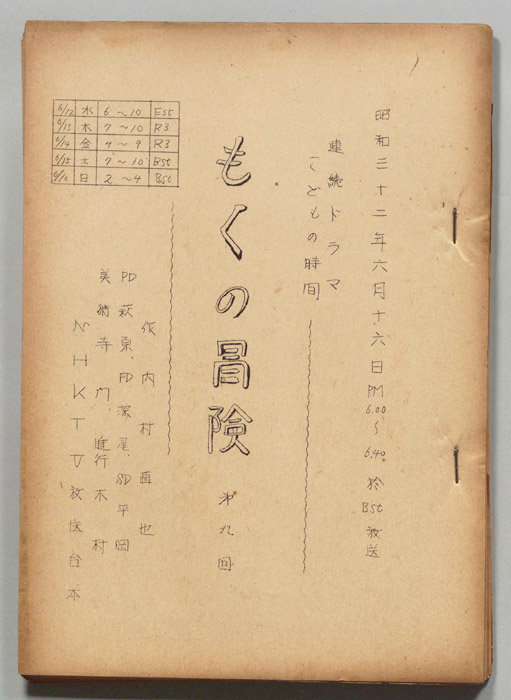 昭和三十二年六月十六日PM6.00〜6.40。於Bst放送
連続ドラマ
こどもの時間
もくの冒険 第九回
作 内村直也
PD萩原、FD深尾、SD平岡
美術寺門、進行木村
NHKTV放送台本
6/12 水 6〜10 Est
6/13 木 7〜10 R3
6/14 金 4〜9 R3
6/15 土 7〜10 Bst
6/16 日 2〜4 Bst